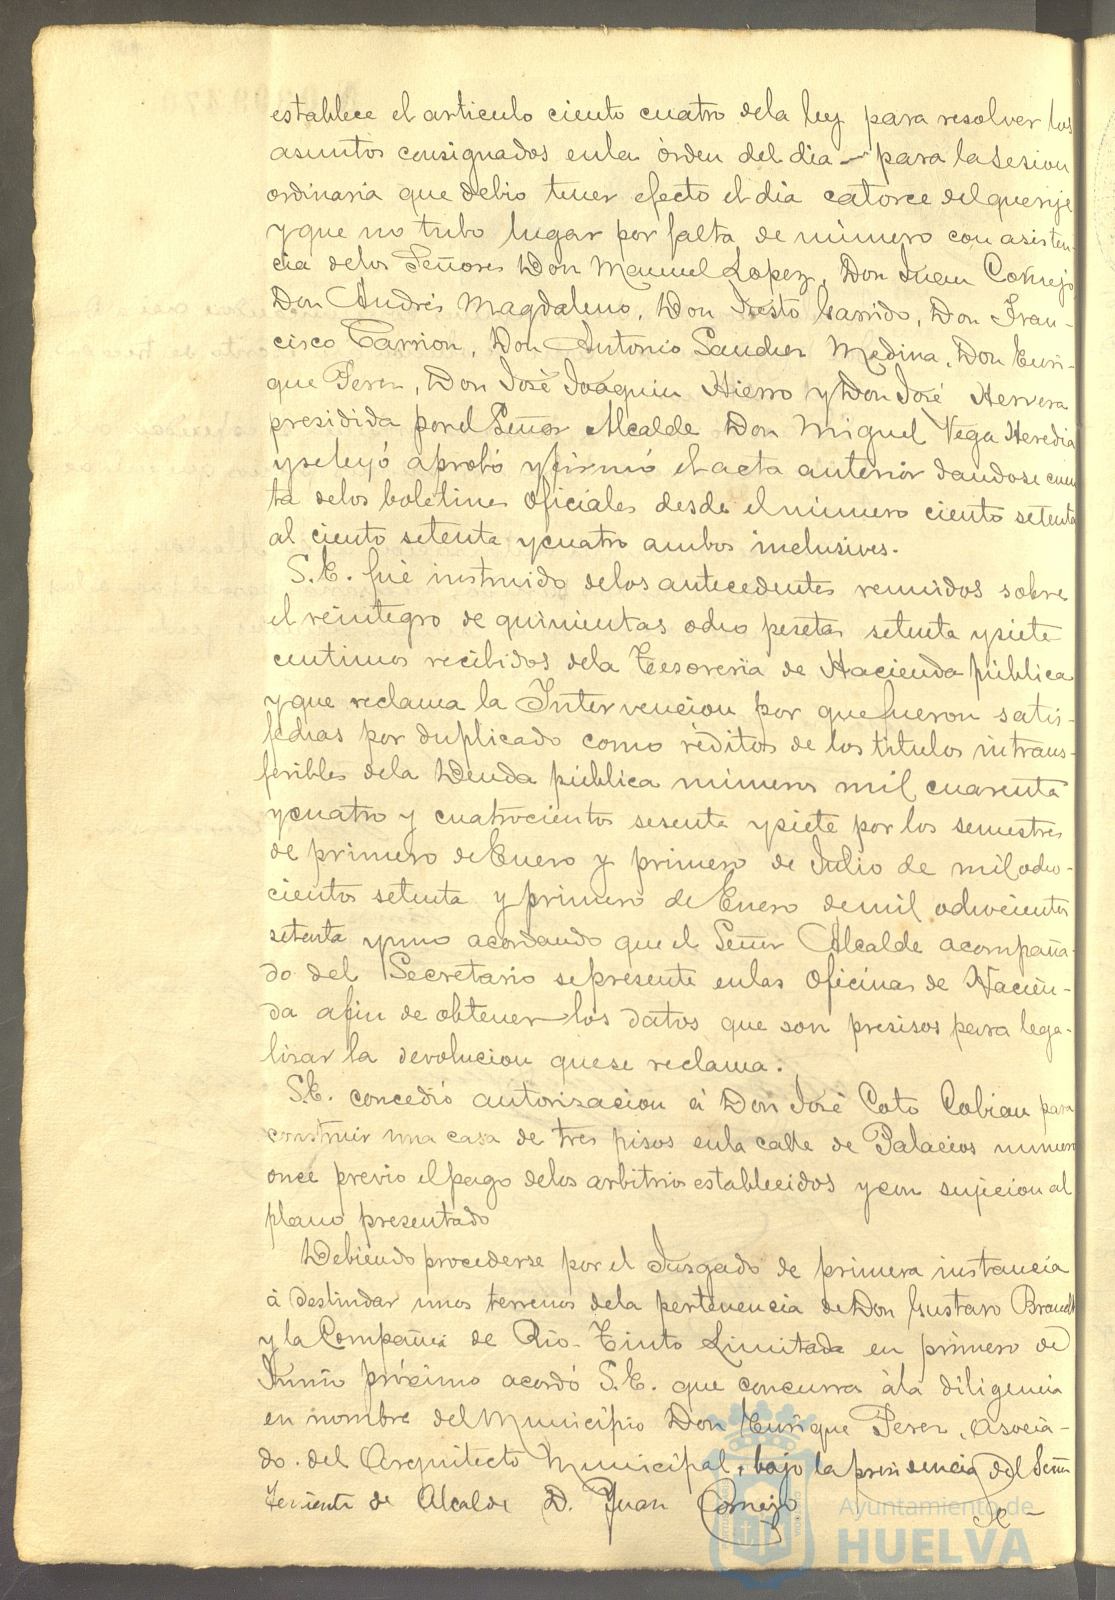 establece el articulo ciento cuatro dela ley para resolver los
asuntos consignados enla órden del dia - para la sesion
ordinaria que debio tener efecto el dia catorce del que rije
y que no tubo lugar por falta de número con asisten-
cia delos Señores Don Manuel Lopez, Don Juan Cornejo
Don Andrés Magdaleno, Don Justo Garrido, Don Fran-
cisco Carrion, Don Antonio Sanchez Medina, Don Enri-
que Perez, Don José Joaquin Hierro y Don José Herrera
presidida por el Señor Alcalde Don Miguel Vega Heredia
y se leyó aprobó y firmó el acta anterior dandose cuen
ta delos boletines oficiales desde el número ciento setenta
al ciento setenta y cuatro ambos inclusives.
S.E. fué instruido delos antecedentes reunidos sobre
el reintegro de quinientas ocho pesetas setenta y siete
centimos recibidos dela Tesoreria de Hacienda pública
y que reclama la Intervencion por que fueron satis-
fechas por duplicado como réditos de los titulos intrans-
feribles dela Deuda pública números mil cuarenta
y cuatro y cuatrocientos sesenta y siete por los semestres
de primero de Enero y primero de Julio de mil ocho-
cientos setenta y primero de Enero de mil ochocientos
setenta y uno acordando que el Señor Alcalde acompaña-
do del Secretario se presente enlas oficinas de Hacien-
da afin de obtener los datos que son presisos para lega-
lizar la devolucion que se reclama.
S.E. concedió autorizacion á Don José Coto Cobian para
construir una casa de tres pisos enla calle de Palacios numero
once previo el pago delos arbitrios establecidos y con sujecion al
plano presentado
Debiendo procederse por el Jusgado de primera instancia
á deslindar unos terrenos dela pertenencia de Don Gustavo Brandt
y la Compañia de Rio-Tinto Limitada en primero de
Junio próximo acordó S.E. que concurra á la diligencia
en nombre del Municipio Don Enrique Perez, asocia-
do del Arquitecto Municipal, bajo la presidencia del Señor
Teniente de Alcalde D. Juan Cornejo
Ayuntamiento de
HUELVA